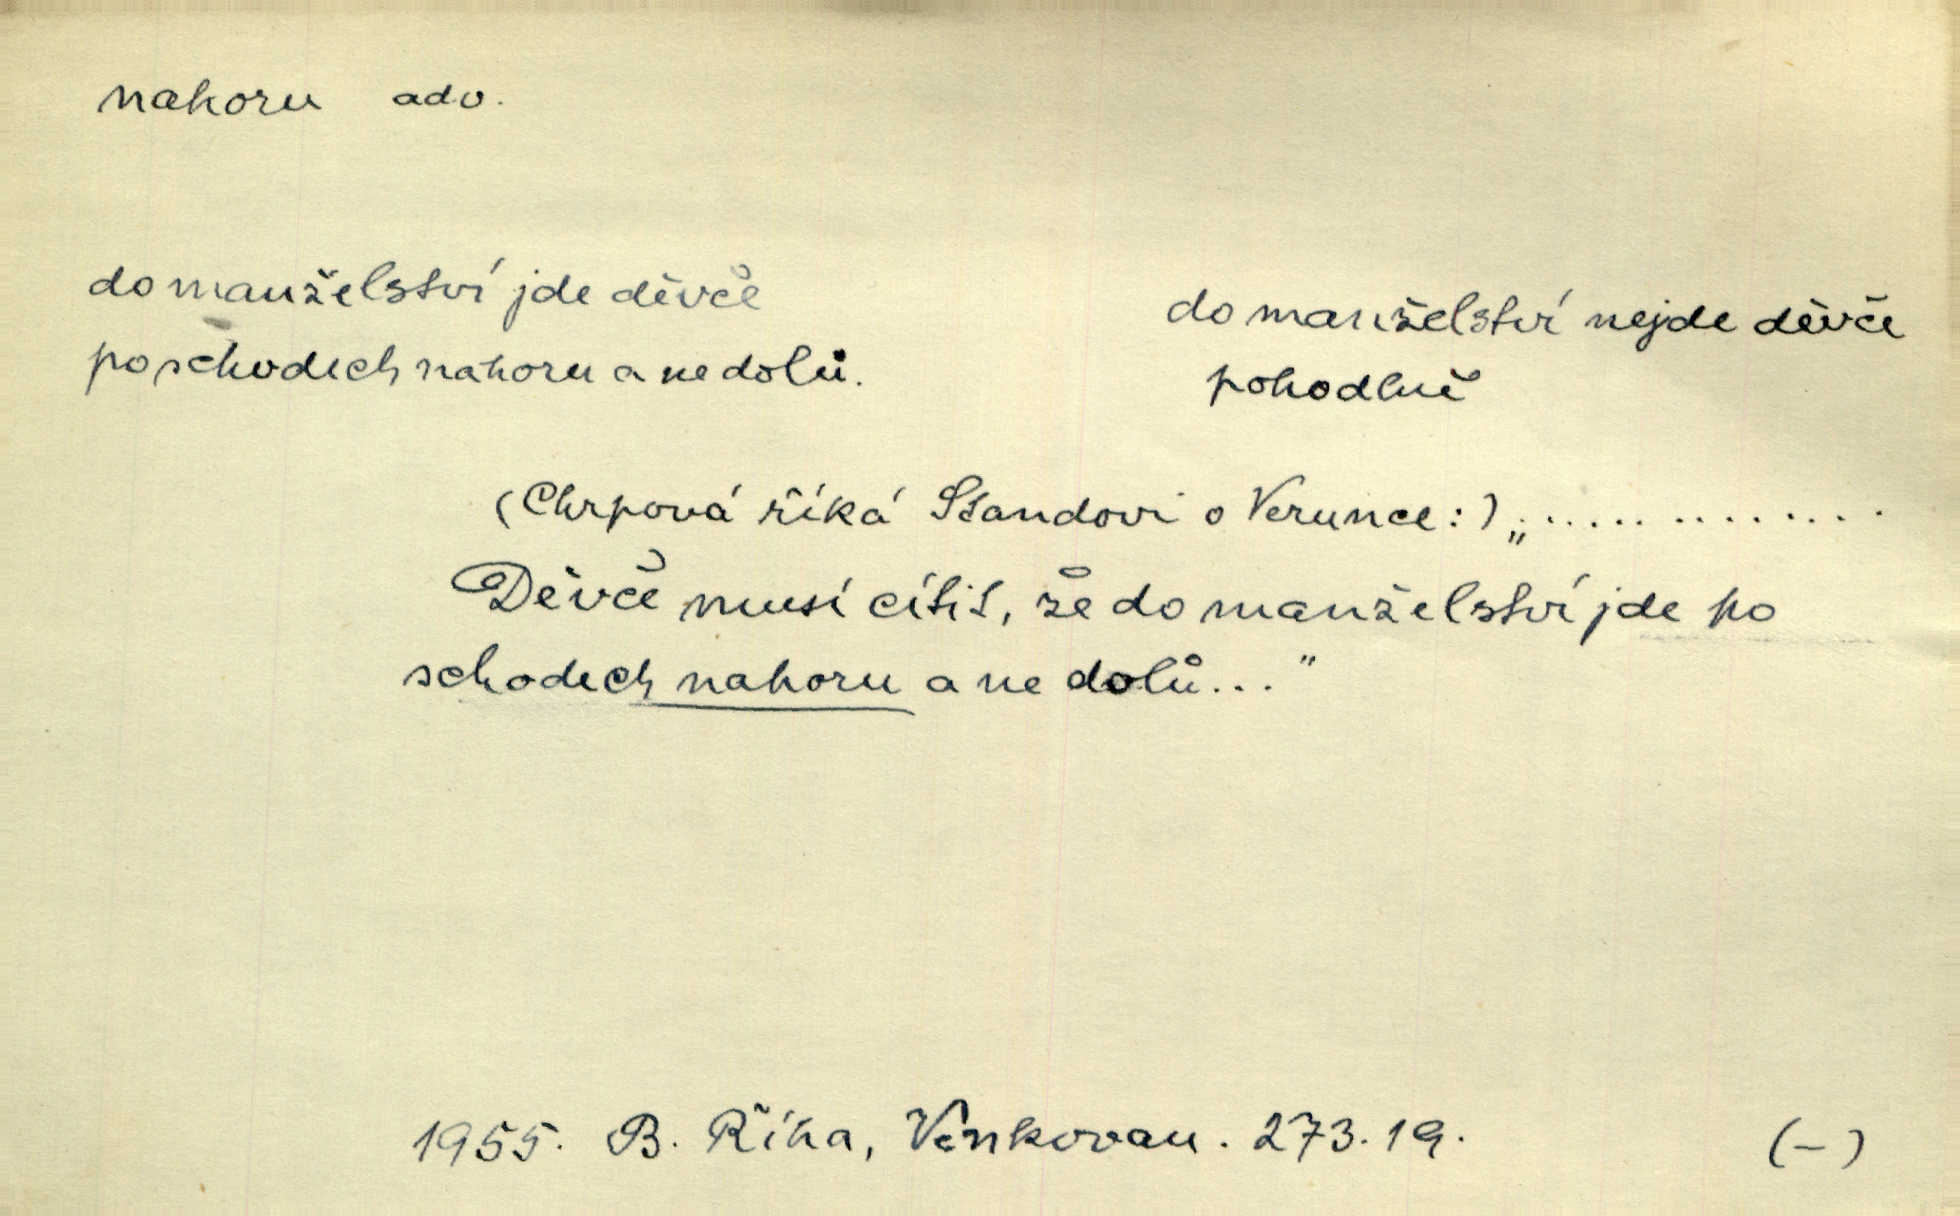 nahoru adv.
do manželství jde děvče
po schodech nahoru a ne dolů.
do manželství nejde děvče
pohodlně
(Chrpová říká Standovi o Verunce:) „..............
Děvče musí cítit, že do manželství jde po
schodech nahoru a ne dolů..."
1955. B. Říha, Venkovan. 273.19.
(-)